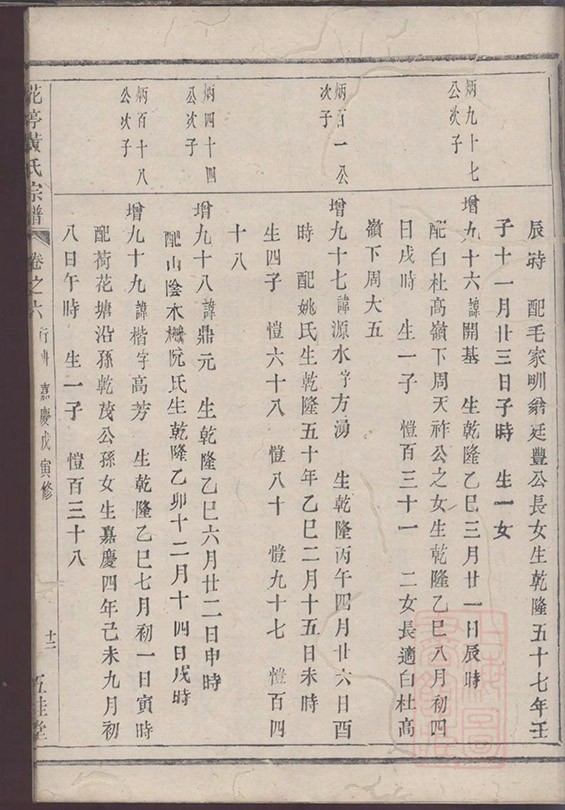 辰時　配毛家畈翁廷豐公長女生乾隆五十七年壬
子十一月廿三日子時　生一女
炳九十七
公次子
增九十六諱開基　生乾隆乙巳三月廿一日辰時
配白杜高嶺下周天祚公之女生乾隆乙巳八月初四
日戌時　生一子　愷百三十一　二女長適白杜高
嶺下周大五
炳百一公
次子
增九十七諱源水字方湧　生乾隆丙午四月廿六日酉
時　配姚氏生乾隆五十年乙巳二月十五日未時
生四子　愷六十八　愷八十　愷九十七　愷百四
十八
炳四十四
公次子
增九十八諱鼎元　生乾隆乙巳六月廿二日申時
配山陰木柵阮氏生乾隆乙卯十二月十四日戌時
炳百十八
公次子
增九十九諱楷字高芳　生乾隆乙巳七月初一日寅時
配荷花塘沿孫乾茂公孫女生嘉慶四年己未九月初
八日午時　生一子　愷百三十八
花亭黃氏宗譜　卷之六　行冊　嘉慶戊寅修　十二　五桂堂